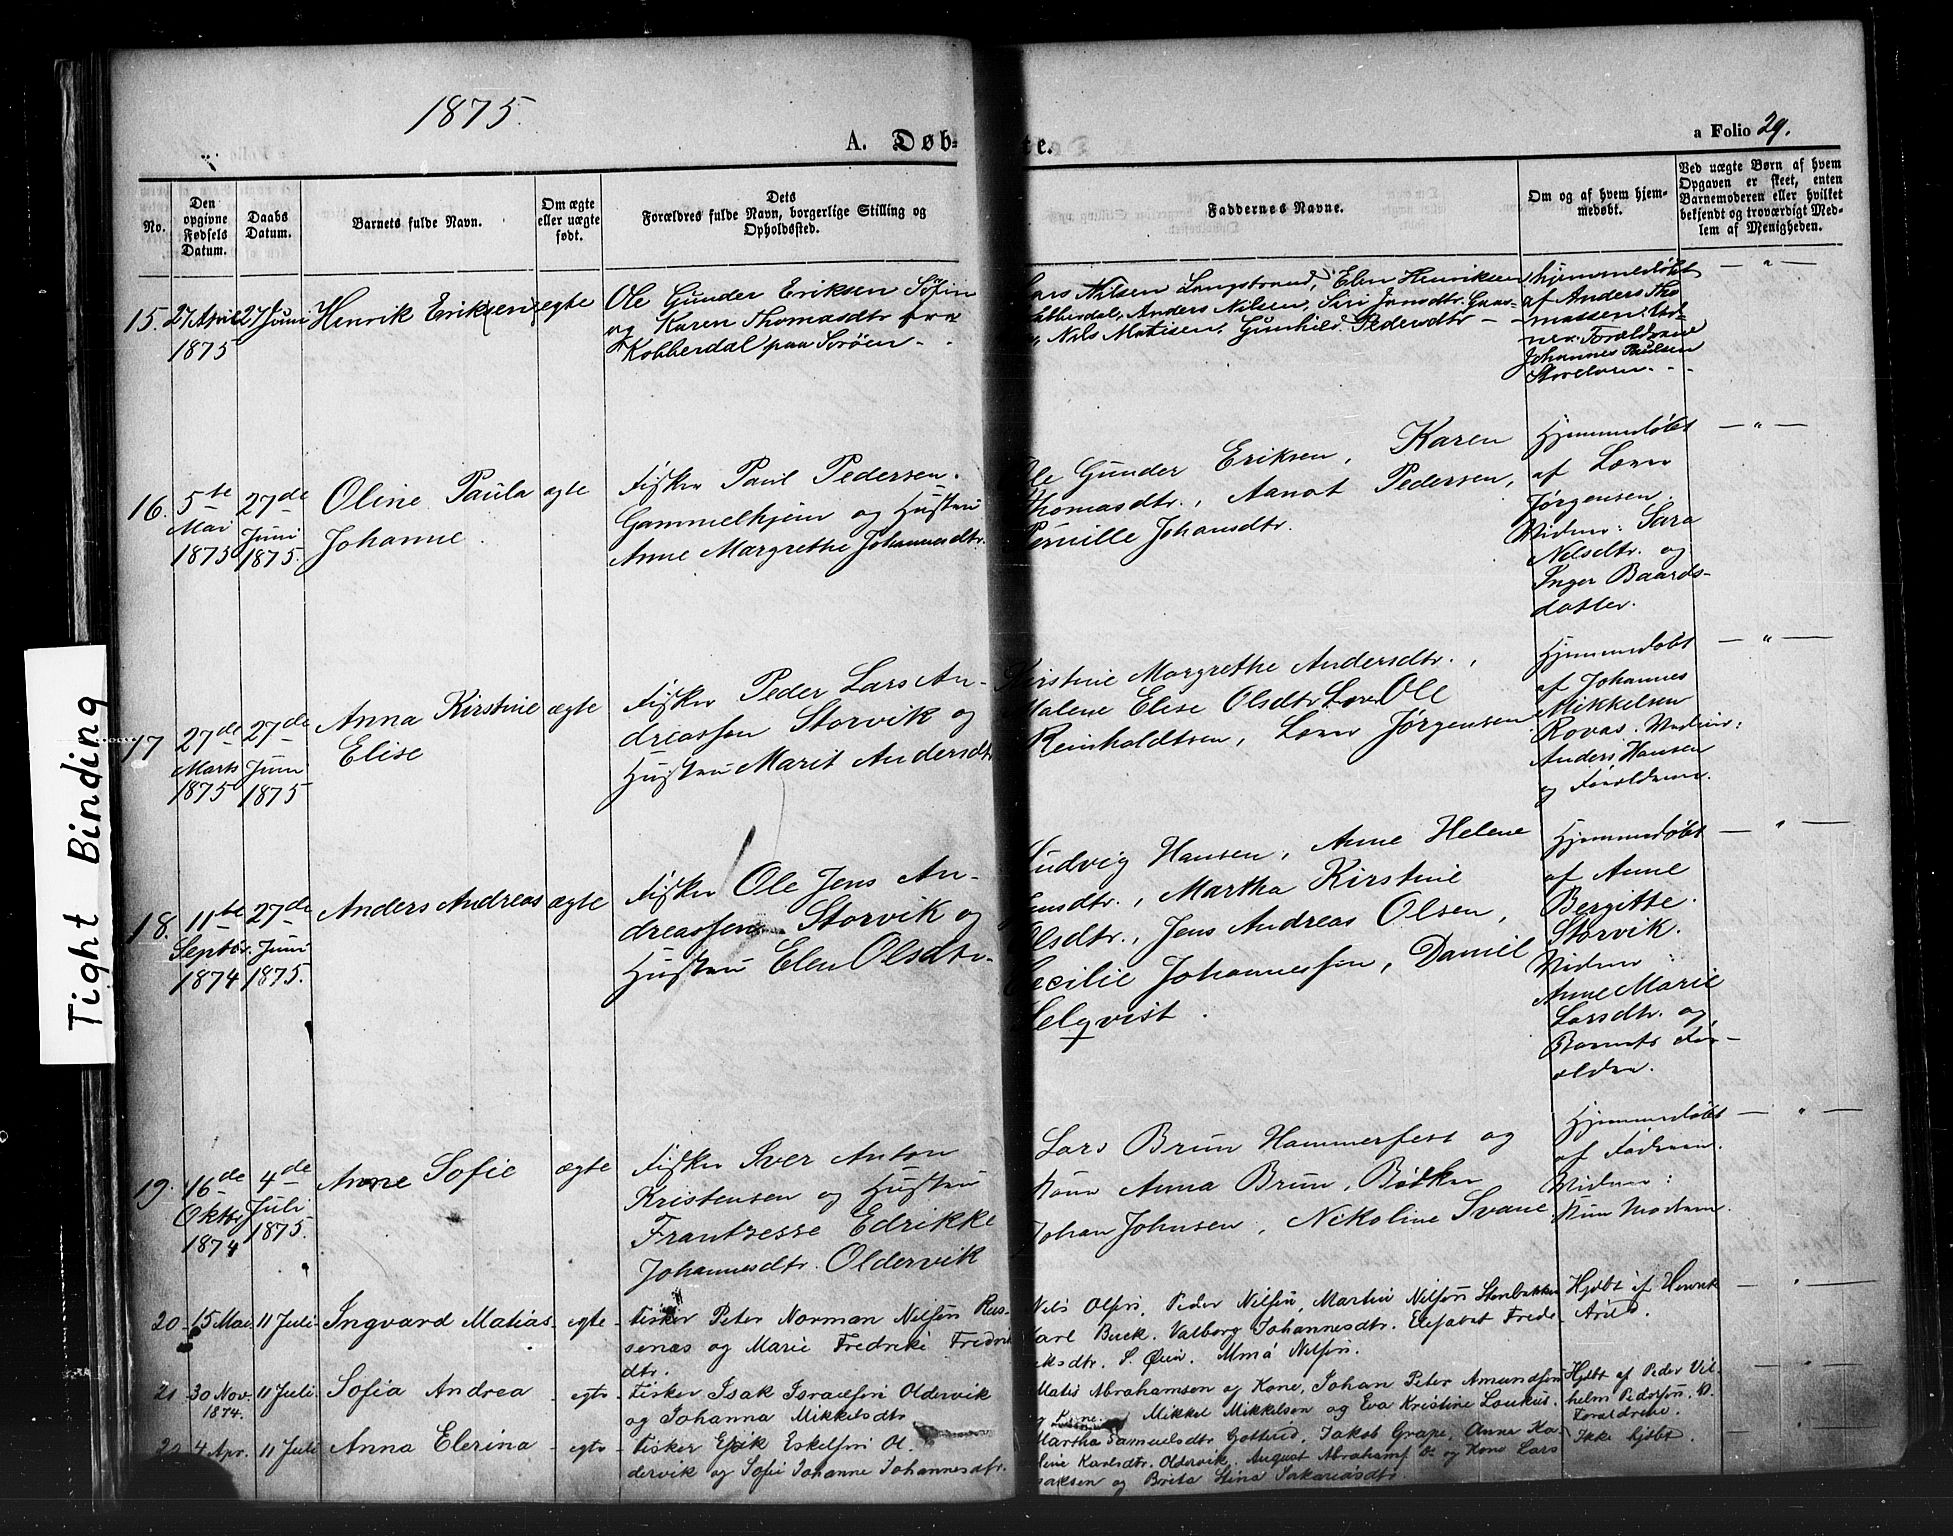 1875.
A. Døb-
te.
a Folio 29.
No.
Den opgivne Fødsels Datum.
Daabs Datum.
Barnets fulde Navn.
Om ægte eller uægte født.
Dets Forældres fulde Navn, borgerlige Stilling og Opholdssted.
Faddernes Navne.
Om og af hvem hjemmedøbt.
Ved uægte Børn af hvem Opgaven er skeet, enten Barnemoderen eller hvilket bekjendt og troværdigt Medlem af Menigheden.
15. 27 April 27 Juni Henrik Eriksen ægte Ole Gunder Eriksen
1875
og Karen Thomasdtr fra
Kobberdal paa Sørøen - "
Lars Nilsen Langstrand, Elen Henriksen
Kobberdal, Anders Nilsen, Siri Jansdtr.
Nils Matisen, Gunhild Pedersdtr - -
hjemmedøbt
af Anders Tho
massen: Vid-
ner: Forældrene
Johannes Paulsen
- " -
16. 5te Mai 1875 27de Juni 1875. Oline Paula
Johanne.
ægte
Fisker Paul Pedersen
Gammelhjem og Hustru
Anne Margrethe Johannesdtr.
Ole Gunder Eriksen, Karen
Thomasdtr., Aanot Pedersen,
Pernille Johansdtr.
Hjemmedøbt
af Lars
Jørgensen.
Vidner: Sara
Nilsdtr. og
Inger Baards-
datter.
- " -
17 27de Marts 1875 27de Juni 1875
Anna Kirstine
Elise
ægte
Fisker Peder Lars An-
dreassen Storvik og
Hustru Marit Andersdtr
Kirstine Margrethe Andersdtr.,
Malene Elise Olsdtr Ole
Reinholdtsen, Lars Jørgensen
Hjemmedøbt
af Johannes
Mikkelsen
Rovas. Vidner:
Anders Hansen
og Forældrene.
- " -
18. 11te Septbr. 1874 27de Juni 1875.
Anders Andreas
ægte
Fisker Ole Jens An-
dreassen Storvik og
Hustru Elen Olsdtr.
Ludvig Hansen, Anne Helene
Jensdtr., Martha Kirstine
Olsdtr., Jens Andreas Olsen,
Cecilie Johannessen, Daniel
Helqvist.
Hjemmedøbt
af Anne
Bergitte
Storvik.
Vidner:
Anne Marie
Larsdtr. og
Barnets For-
ældre.
- " -
19. 16de Oktbr 1874 4de Juli 1875.
Anne Sofie
ægte
Fisker Iver Anton
Kristensen og Hustru
Frantzesse Edrikke
Johannesdtr. Oldervik
Lars Brun Hammerfest og
Kone Anna Brun, Bødker
Johan Johnsen, Nikoline Svane.
Hjemmedøbt
af Faderen.
Vidner:
Kun Moderen.
- " -
20 15 Mai 11 Juli Ingvard Matias ægte
Fisker Peter Norman Nilsen Rus-
senæs og Marie Fredrikke Fredrik
dtr.
Nils Olsen, Peder Nilsen, Martin Nilsen Stenbakken
Karl Buck. Valborg Johannesdtr. Elisabet Frede-
riksdtr. S. Øien.
Hjdbt af Henrik
Arild.
21 30 Nov. 1874. 11 Juli Sofia Andrea ægte
Fisker Isak Israelsen Oldervik
og Johanna Mikkelsdtr
Matis Abrahamsen og Kone, Johan Peter Amundsen
Mikkel Mikkelsen og Eva Kristine Loukus.
Hjdbt af Peder Vil-
helm Pedersen. V.
Forældrene.
22 4 Apr. 11 Juli Anna Elerina ægte
Fisker Erik Eskelsen Ol-
dervik og Sofie Johanne Johannesdtr.
Martha Samuelsdtr Gottlied. Jakob Grape, Anne Ka-
line Karlsdtr. Oldervik. August Abrahams og Kone Lars
Isaksen og Brita Stina Sakariasdtr.
Ikke hjdbt.
Tight Binding